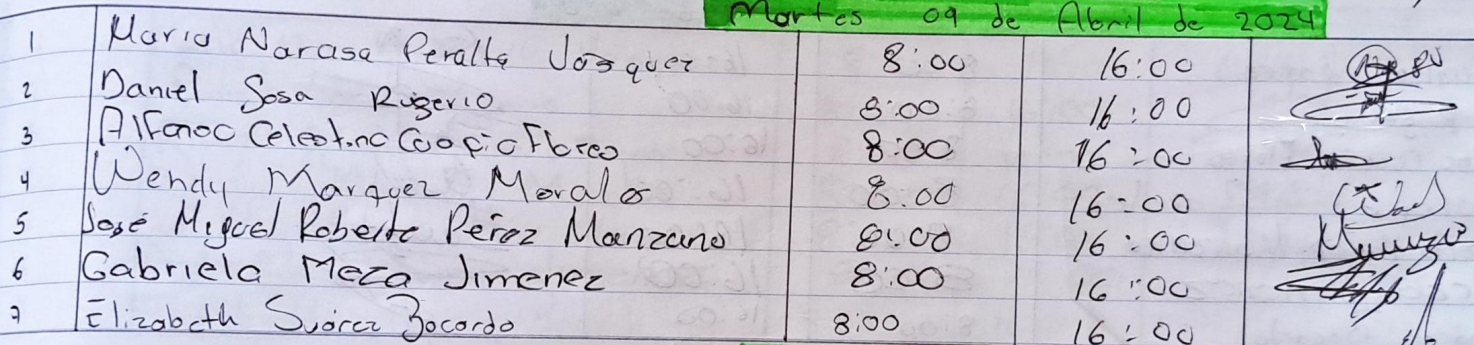 Martes 09 de Abril de 2024
1 Maria Narasa Peralta Vasquez 8:00 16:00
2 Daniel Sosa Rugerio 8:00 16:00
3 Celestino Flores 8:00 16:00
4 Wendy Marquez Morales 8:00 16:00
5 José Miguel Roberto Perez Manzano 8:00 16:00
6 Gabriela Meza Jimenez 8:00 16:00
7 Elizabeth Suárez Bocardo 8:00 16:00